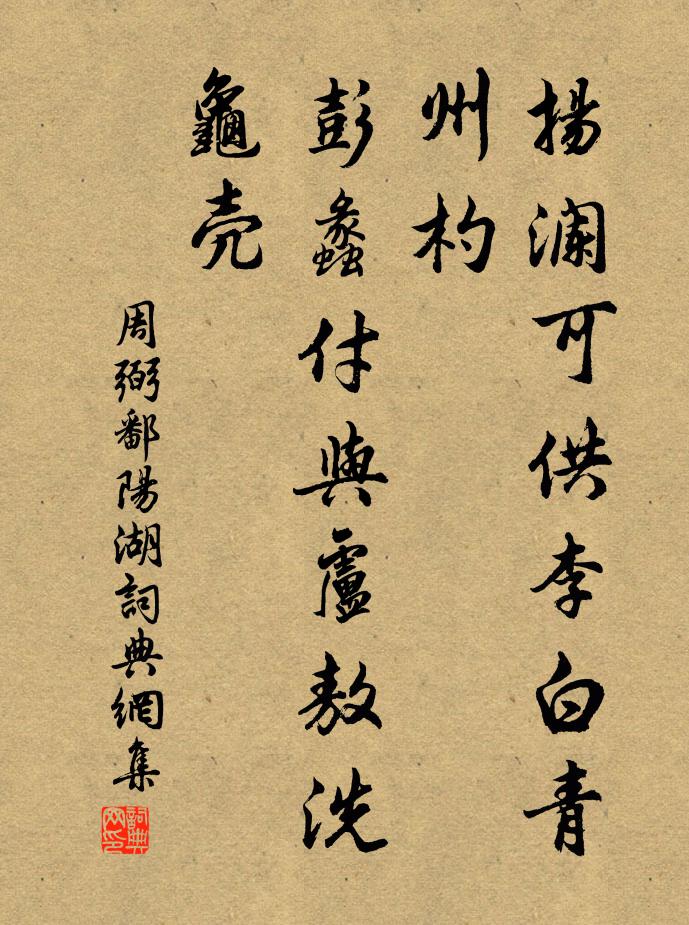 揚瀾可供李白青
州杓
彭蠡付與盧敖洗
龜壳
周弼鄱陽湖詞典網集
詞典网印